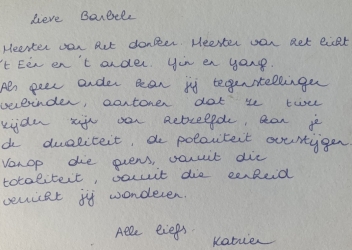 Lieve Barbele
Meester van het donker. Meester van het licht
't Eén en 't ander. Yin en Yang.
Als geen ander kan jij tegenstellingen
verbinden, aantonen dat ze twee
zijden zijn van hetzelfde, kan je
de dualiteit, de polariteit overstijgen.
Vanop die grens, vanuit die
totaliteit, vanuit die eenheid
verricht jij wonderen.
Alle liefs.
Katrien